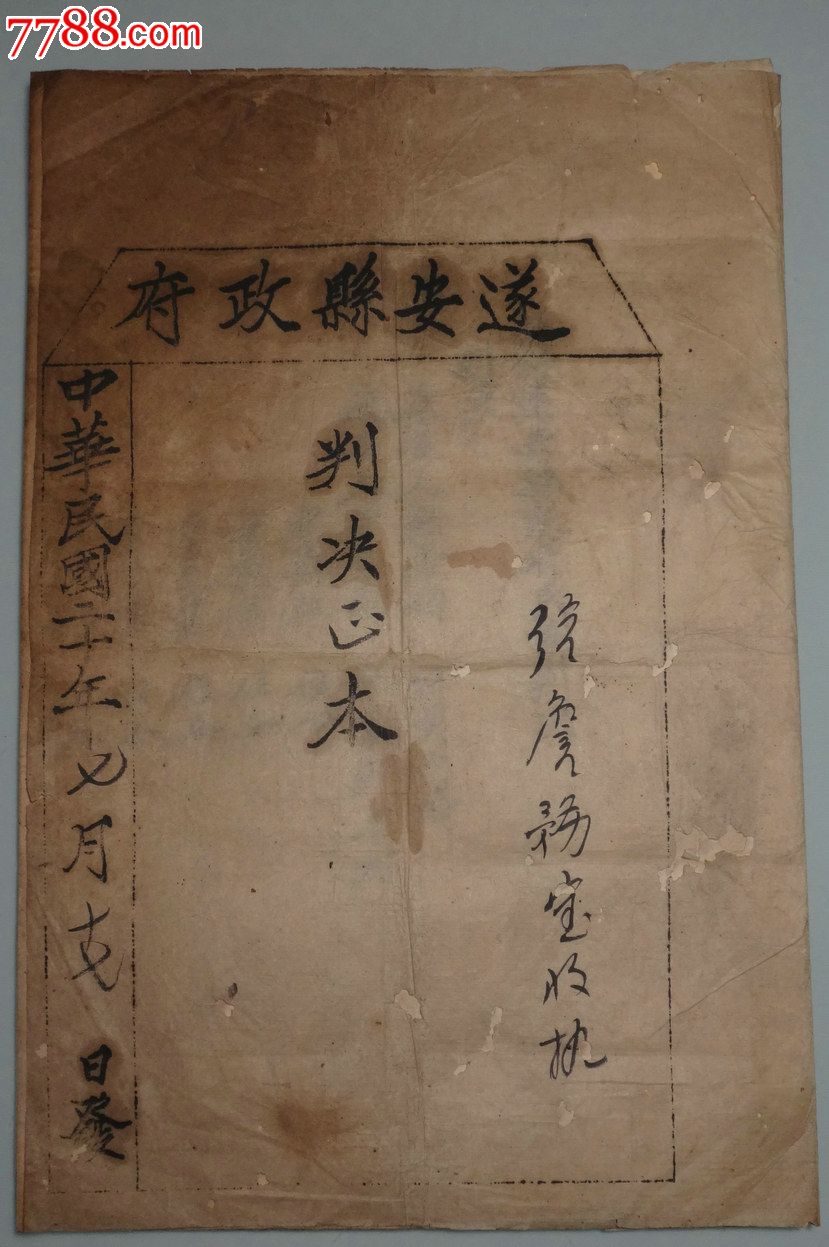 7788.com
遂安縣政府
詹務宝收执
判决正本
中華民國二十年七月十七日發